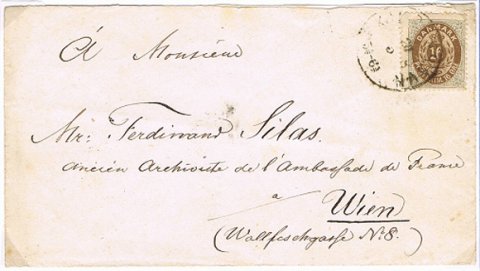 Á Monsieur
Mr: Ferdinand Silas.
ancien Archiviste de l'Ambassade de France
a
Wien
(Wallfischgasse N: 8.)
DANMARK
16